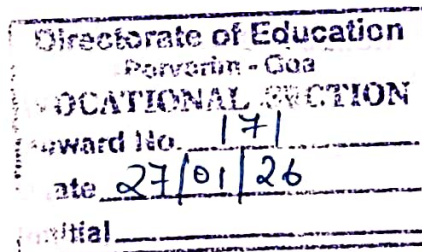 Directorate of Education
Porvorim - Goa
VOCATIONAL SECTION
Inward No. 171
Date 27/01/26
Initial